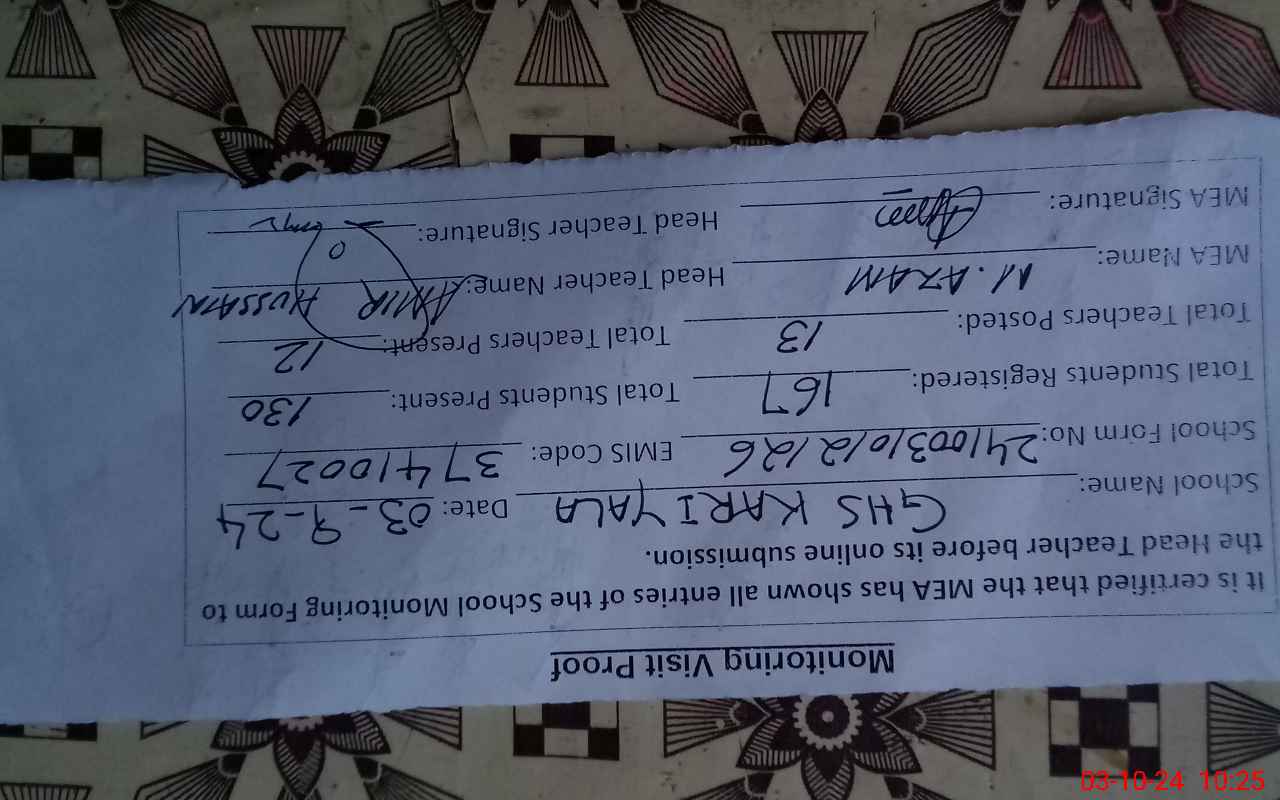 Monitoring Visit Proof
It is certified that the MEA has shown all entries of the School Monitoring Form to
the Head Teacher before its online submission.
School Name: GHS KARIYALA Date: 03-9-24
School Form No: 2410031012126 EMIS Code: 37410027
Total Students Registered: 167 Total Students Present: 130
Total Teachers Posted: 13 Total Teachers Present: 12
MEA Name: M. AZAM Head Teacher Name: AMIR HUSSAIN
MEA Signature: Head Teacher Signature:
03-10-24 10:25